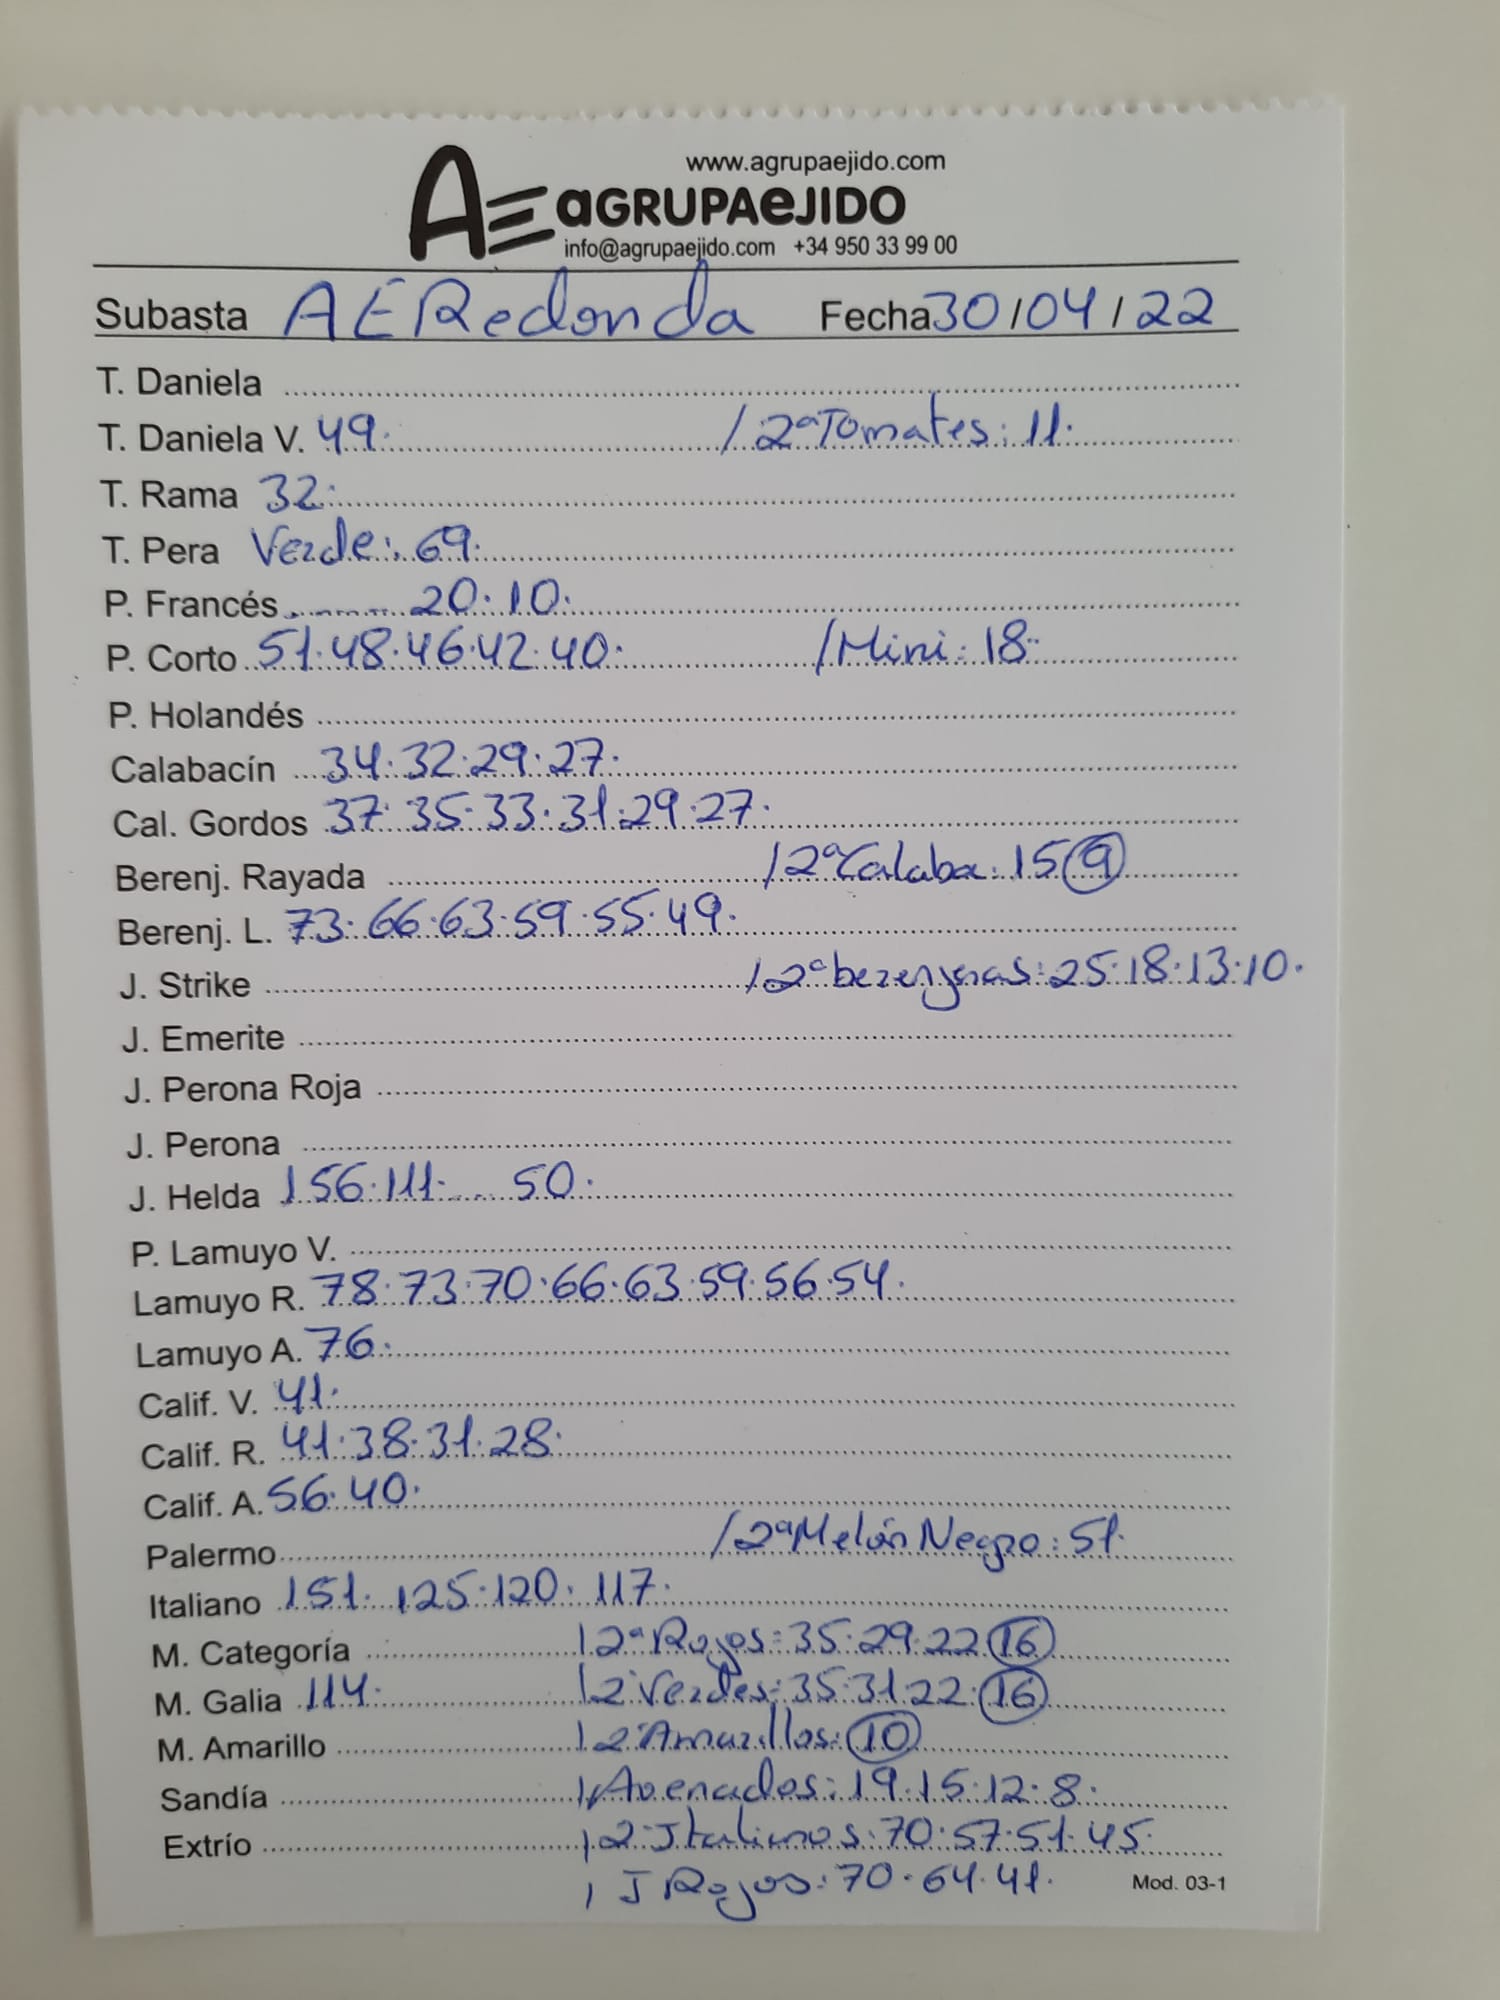 www.agrupaejido.com
AE aGRUPAeJIDO
info@agrupaejido.com +34 950 33 99 00
Subasta AERedonda Fecha 30/04/22
T. Daniela
T. Daniela V. 49. /2ªTomates: 11.
T. Rama 32.
T. Pera Verde: 69.
P. Francés 20.10.
P. Corto 51.48.46.42.40. /Mini: 18.
P. Holandés
Calabacín 34.32.29.27.
Cal. Gordos 37.35.33.31.29.27.
Berenj. Rayada /2ªCalaba: 15 (9)
Berenj. L. 73.66.63.59.55.49.
J. Strike /2ªberenjenas: 25.18.13.10.
J. Emerite
J. Perona Roja
J. Perona
J. Helda 156.111. .... 50.
P. Lamuyo V.
Lamuyo R. 78.73.70.66.63.59.56.54.
Lamuyo A. 76.
Calif. V. 41.
Calif. R. 41.38.31.28.
Calif. A. 56.40.
Palermo /2ªMelón Negro: 51.
Italiano 151. 125.120. 117.
M. Categoría /2ªRojos: 35.29.22 (16)
M. Galia 114. /2ªVerdes: 35.31.22. (16)
M. Amarillo /2ªAmarillos: (10)
Sandía /Asenados: 19.15.12.8.
Extrío /2ªItalianos: 70.57.51.45.
/ J Rojos: 70.64.41. Mod. 03-1